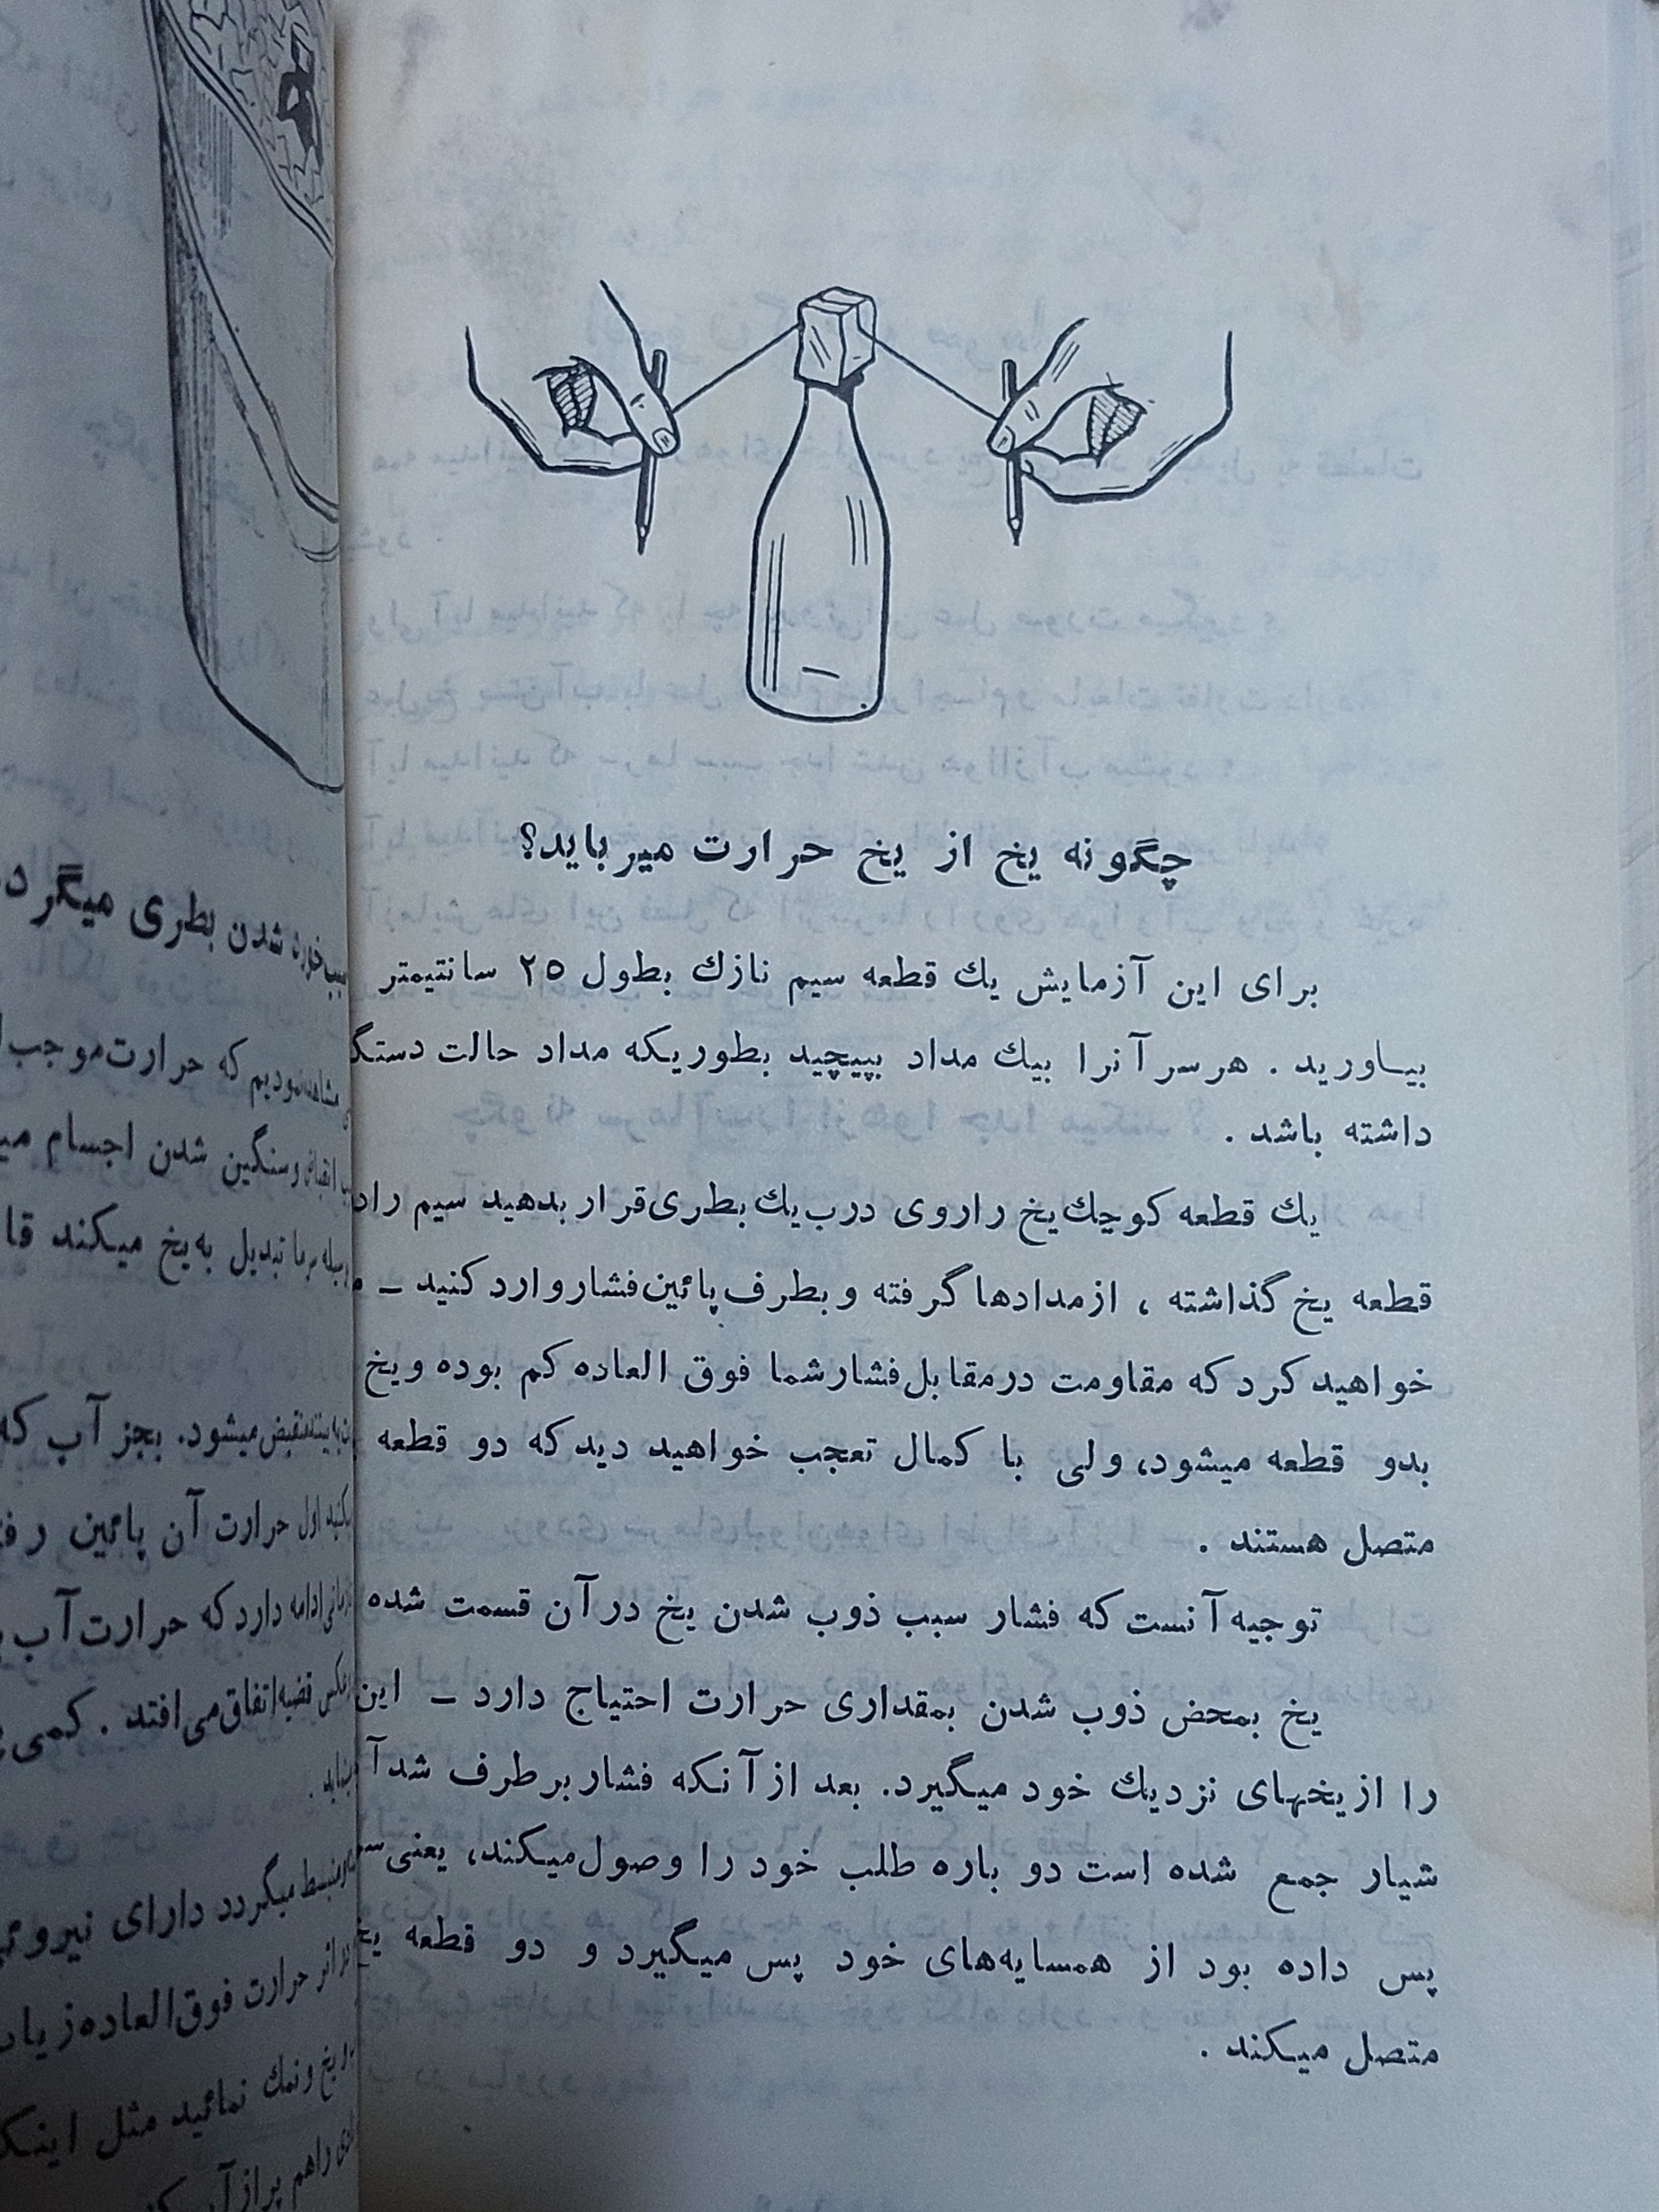 چگونه یخ از یخ حرارت میرباید؟
برای این آزمایش یك قطعه سیم نازك بطول ۲۵ سانتیمتر
بیاورید . هرسر آنرا بیك مداد بپیچید بطوریکه مداد حالت دستگ
داشته باشد .
یك قطعه کوچك یخ را روی درب یك بطری قرار بدهید سیم را
قطعه یخ گذاشته ، از مدادها گرفته و بطرف پائین فشار وارد کنید ـ
خواهید کرد که مقاومت درمقابل فشار شما فوق العاده کم بوده و یخ
بدو قطعه میشود، ولی با کمال تعجب خواهید دید که دو قطعه
متصل هستند .
توجیه آنست که فشار سبب ذوب شدن یخ در آن قسمت شده
یخ بمحض ذوب شدن بمقداری حرارت احتیاج دارد ـ این
را از یخهای نزدیك خود میگیرد. بعد از آنکه فشار برطرف شد آ
شیار جمع شده است دو باره طلب خود را وصول میکند، یعنی
پس داده بود از همسایه‌های خود پس میگیرد و دو قطعه یخ
متصل میکند .
سبب خورد شدن بطری میگرد
مشاهده نمودیم که حرارت موجب
انقباض و سنگین شدن اجسام می
وسیله سرما تبدیل به یخ میکند قا
منقبض میشود. بجز آب که
اول حرارت آن پائین رف
ادامه دارد که حرارت آب
عکس قضیه اتفاق می‌افتد . کمی
منبسط میگردد دارای نیروئی
اثر حرارت فوق العاده زیاد
یخ و نمك نمائید مثل اینک
را هم پر از آب کن